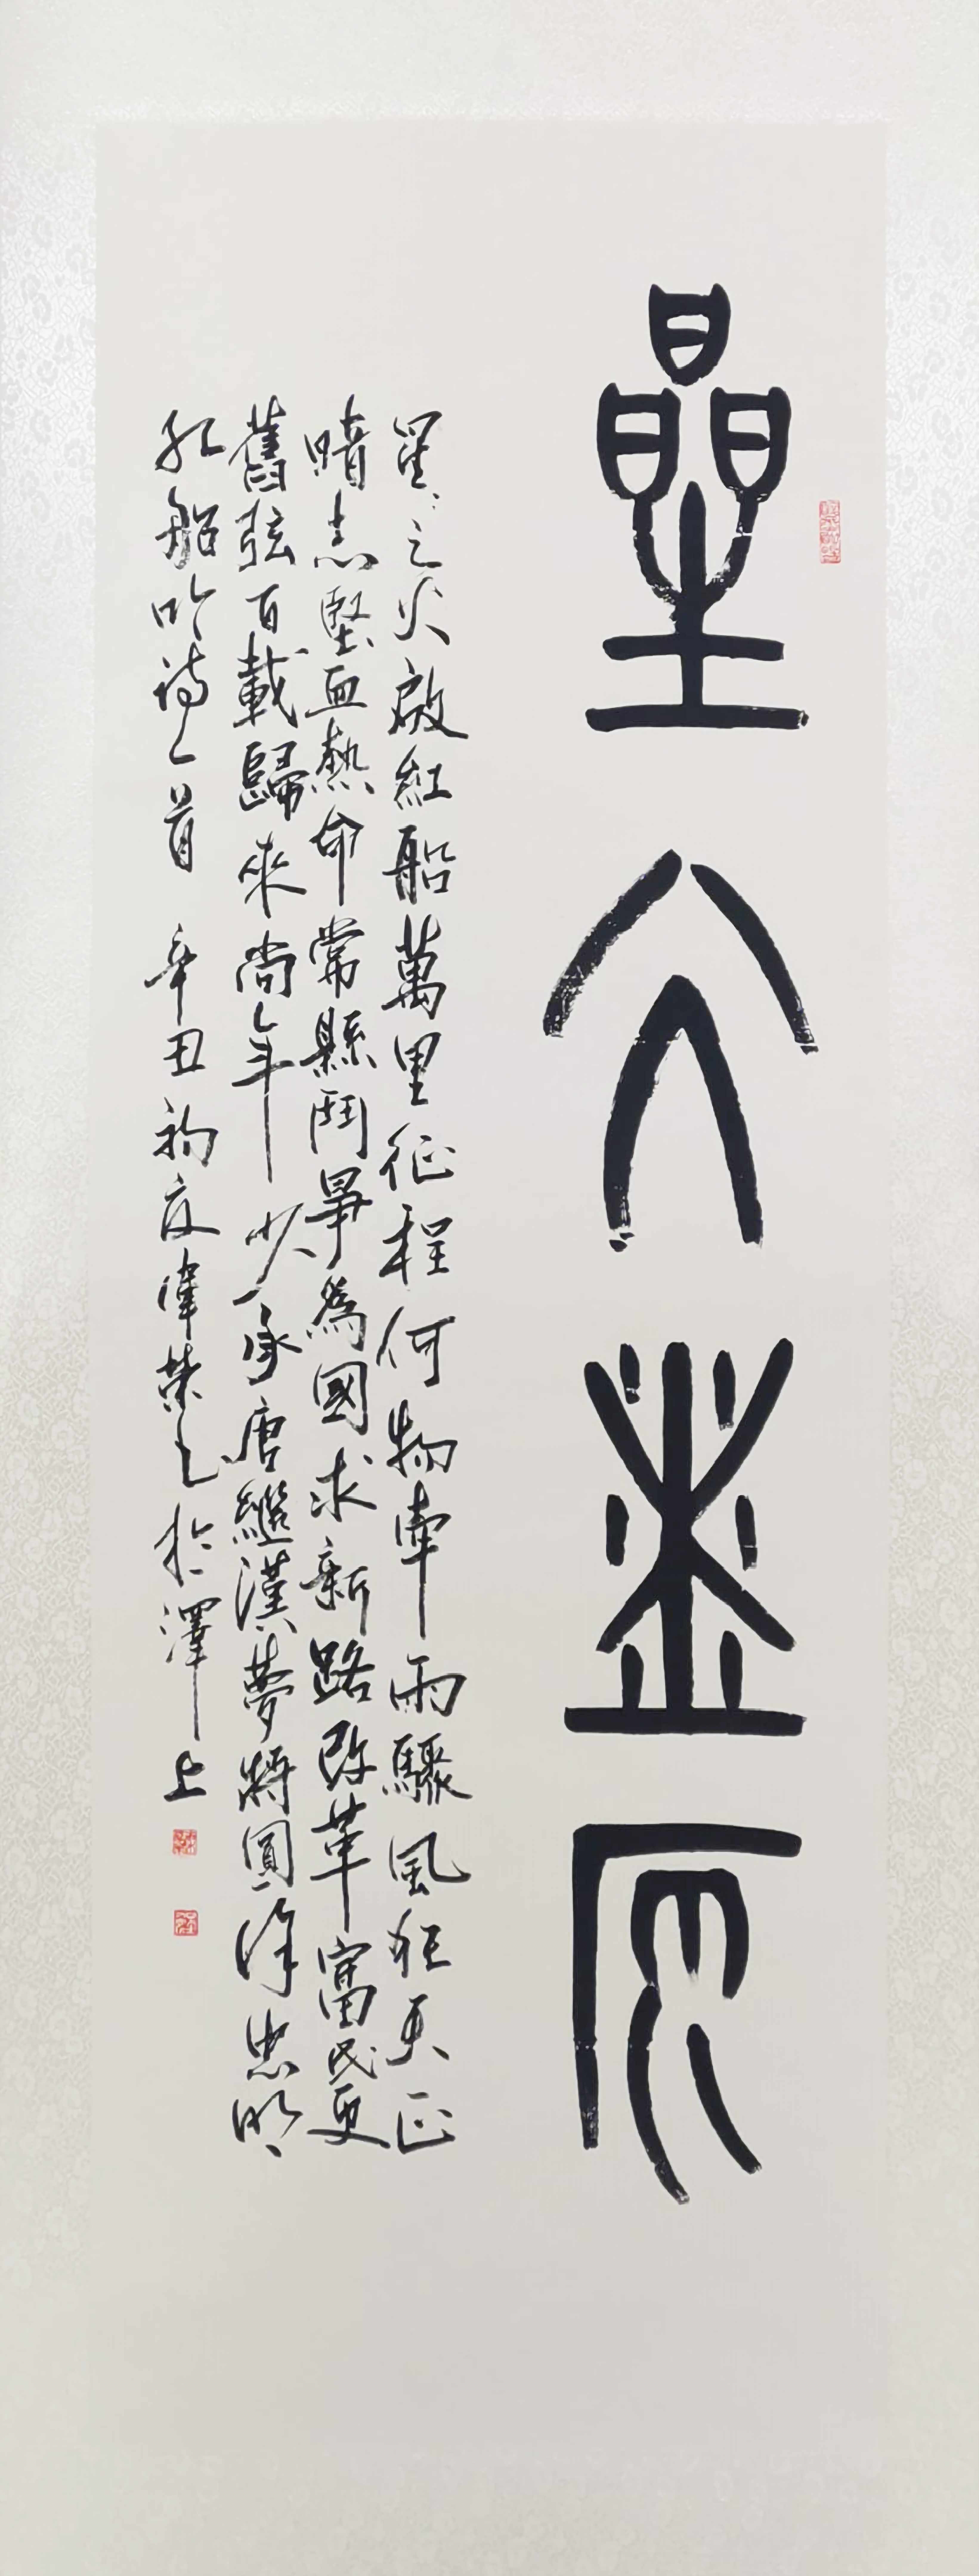 星火燎原
星〻之火啟紅船萬里征程何物牽雨驟風狂天正
暗志堅血熱命常懸鬥爭為國求新路改革富民更
舊弦百載歸來尚年少承唐繼漢夢將圓徐忠明
紅船吟詩一首 辛丑初夏偉榮書於澤上